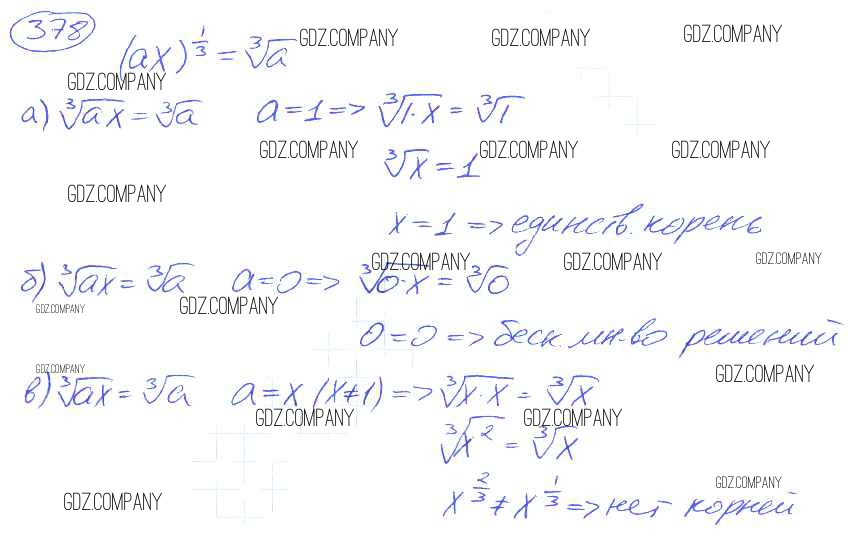 378
(ax)^{1/3} = ∛a
GDZ.COMPANY GDZ.COMPANY GDZ.COMPANY
GDZ.COMPANY
а) ∛(ax) = ∛a a = 1 => ∛(1·x) = ∛1
GDZ.COMPANY GDZ.COMPANY GDZ.COMPANY
∛x = 1
GDZ.COMPANY
x = 1 => единств. корень
GDZ.COMPANY GDZ.COMPANY GDZ.COMPANY
б) ∛(ax) = ∛a a = 0 => ∛(0·x) = ∛0
GDZ.COMPANY GDZ.COMPANY
0 = 0 => беск. мн-во решений
GDZ.COMPANY GDZ.COMPANY
в) ∛(ax) = ∛a a = x (x≠1) => ∛(x·x) = ∛x
GDZ.COMPANY GDZ.COMPANY
∛(x²) = ∛x
GDZ.COMPANY GDZ.COMPANY
x^{2/3} ≠ x^{1/3} => нет корней